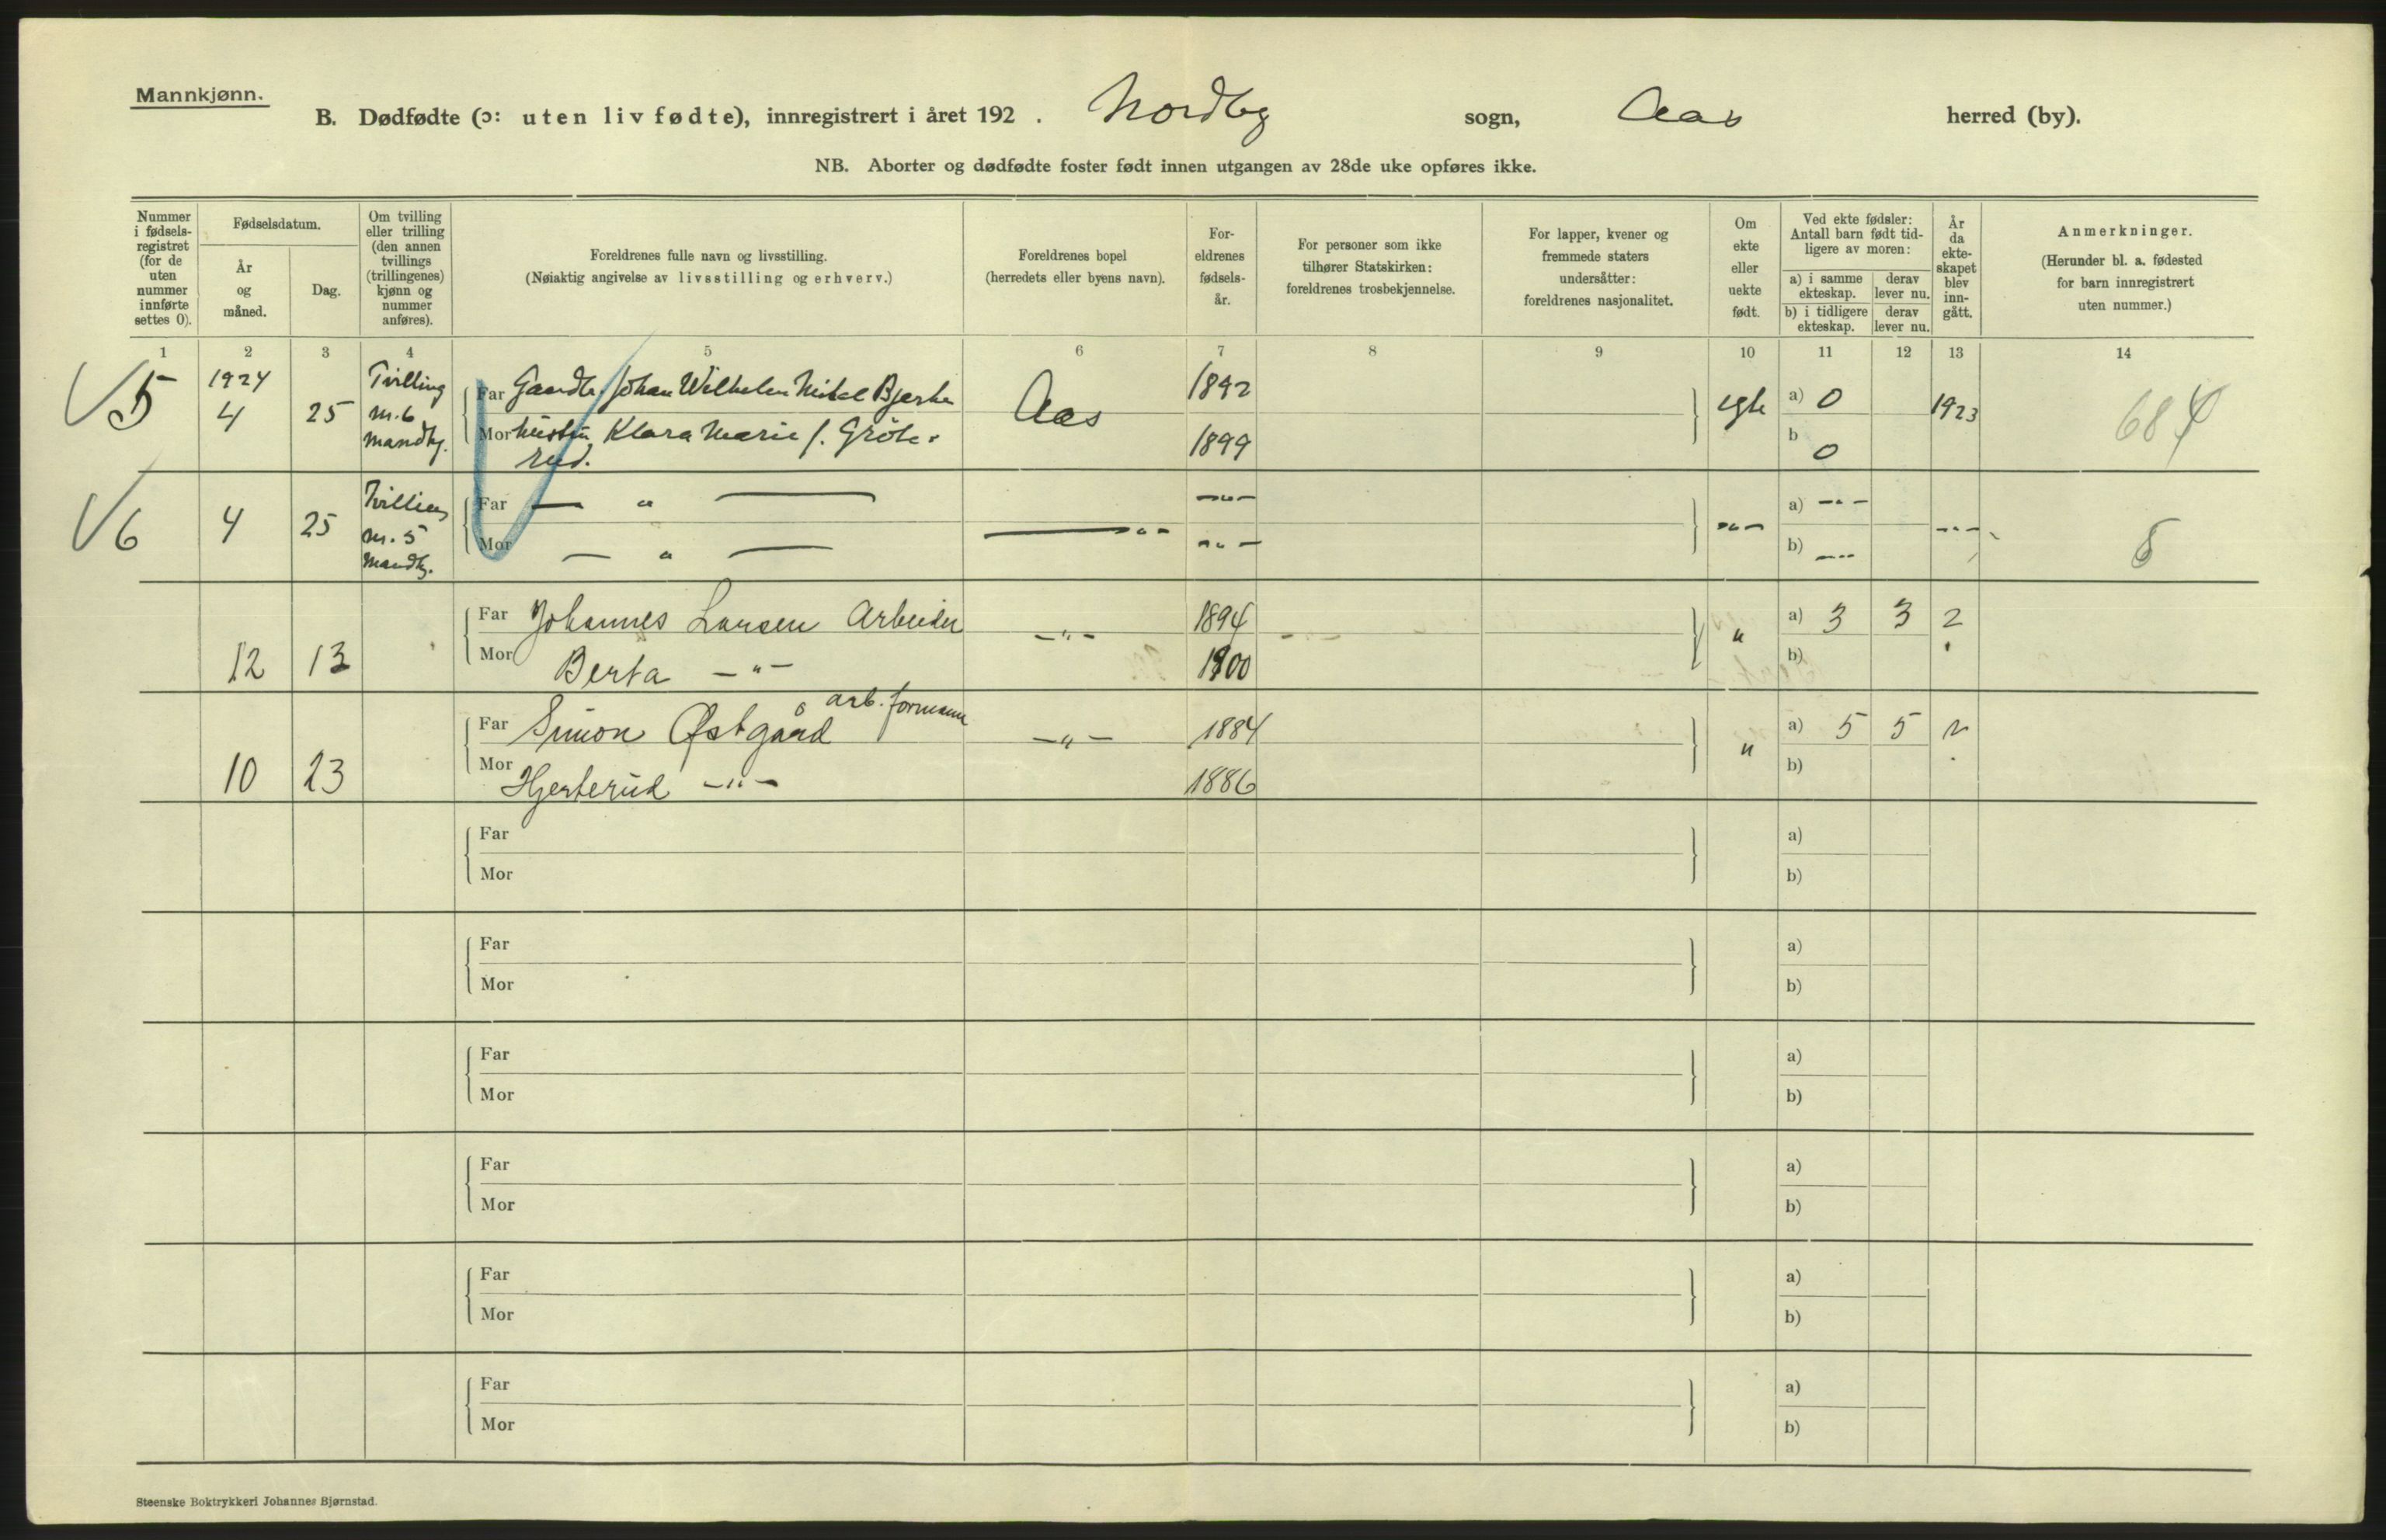 Mannkjønn.
B. Dødfødte (ɔ: uten liv fødte), innregistrert i året 192 . Nordby sogn, Aas herred (by).
NB. Aborter og dødfødte foster født innen utgangen av 28de uke opføres ikke.
Nummer i fødsels- registret (for de uten nummer innførte settes 0).
Fødselsdatum.
År og måned.
Dag.
Om tvilling eller trilling (den annen tvillings (trillingenes) kjønn og nummer anføres).
Foreldrenes fulle navn og livsstilling.
(Nøiaktig angivelse av livsstilling og erhverv.)
Foreldrenes bopel
(herredets eller byens navn).
For- eldrenes fødsels- år.
For personer som ikke tilhører Statskirken: foreldrenes trosbekjennelse.
For lapper, kvener og fremmede staters undersåtter: foreldrenes nasjonalitet.
Om ekte eller uekte født.
Ved ekte fødsler: Antall barn født tid- ligere av moren:
a) i samme ekteskap.
derav lever nu.
b) i tidligere ekteskap.
derav lever nu.
År da ekte- skapet blev inn- gått.
Anmerkninger.
(Herunder bl. a. fødested for barn innregistrert uten nummer.)
1 2 3 4 5 6 7 8 9 10 11 12 13 14
5 1924 4 25 Tvilling m. 6 mandkj. Far Gaardbr. Johan Wilhelm Bjerke Aas 1892 egte a) 0 1923 684
Mor hustru Klara Marie f. 1899 b 0
rud.
6 4 25 Tvilling m. 5 mandkj. Far — " — —"— —"— —"— a) —"— —"— 6
Mor — " — —"— b) —"—
12 13 Far Johannes Larsen Arbeider —"— 1894 " a) 3 3 2
Mor Berta —"— 1900 b)
10 23 Far Simon Østgård arb. formann —"— 1884 " a) 5 5 2
Mor Hjerterud —"— 1886 b)
Far a)
Mor b)
Far a)
Mor b)
Far a)
Mor b)
Far a)
Mor b)
Far a)
Mor b)
Far a)
Mor b)
Steenske Boktrykkeri Johannes Bjørnstad.